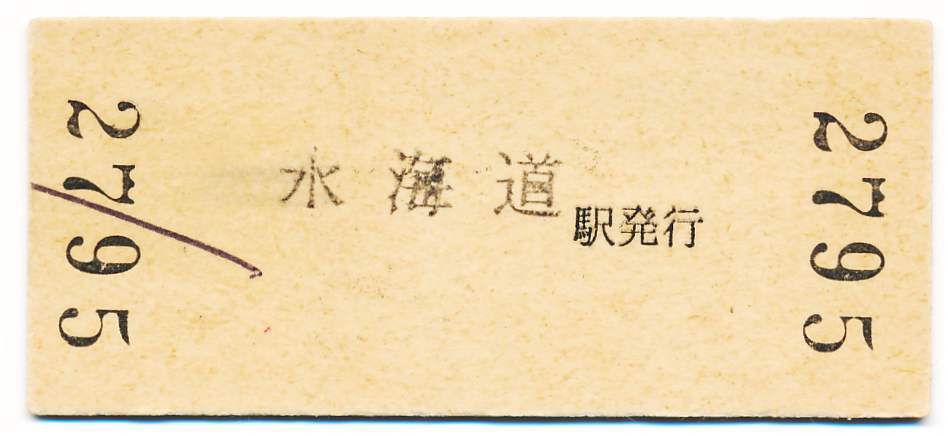 2795
水海道
駅発行
2795